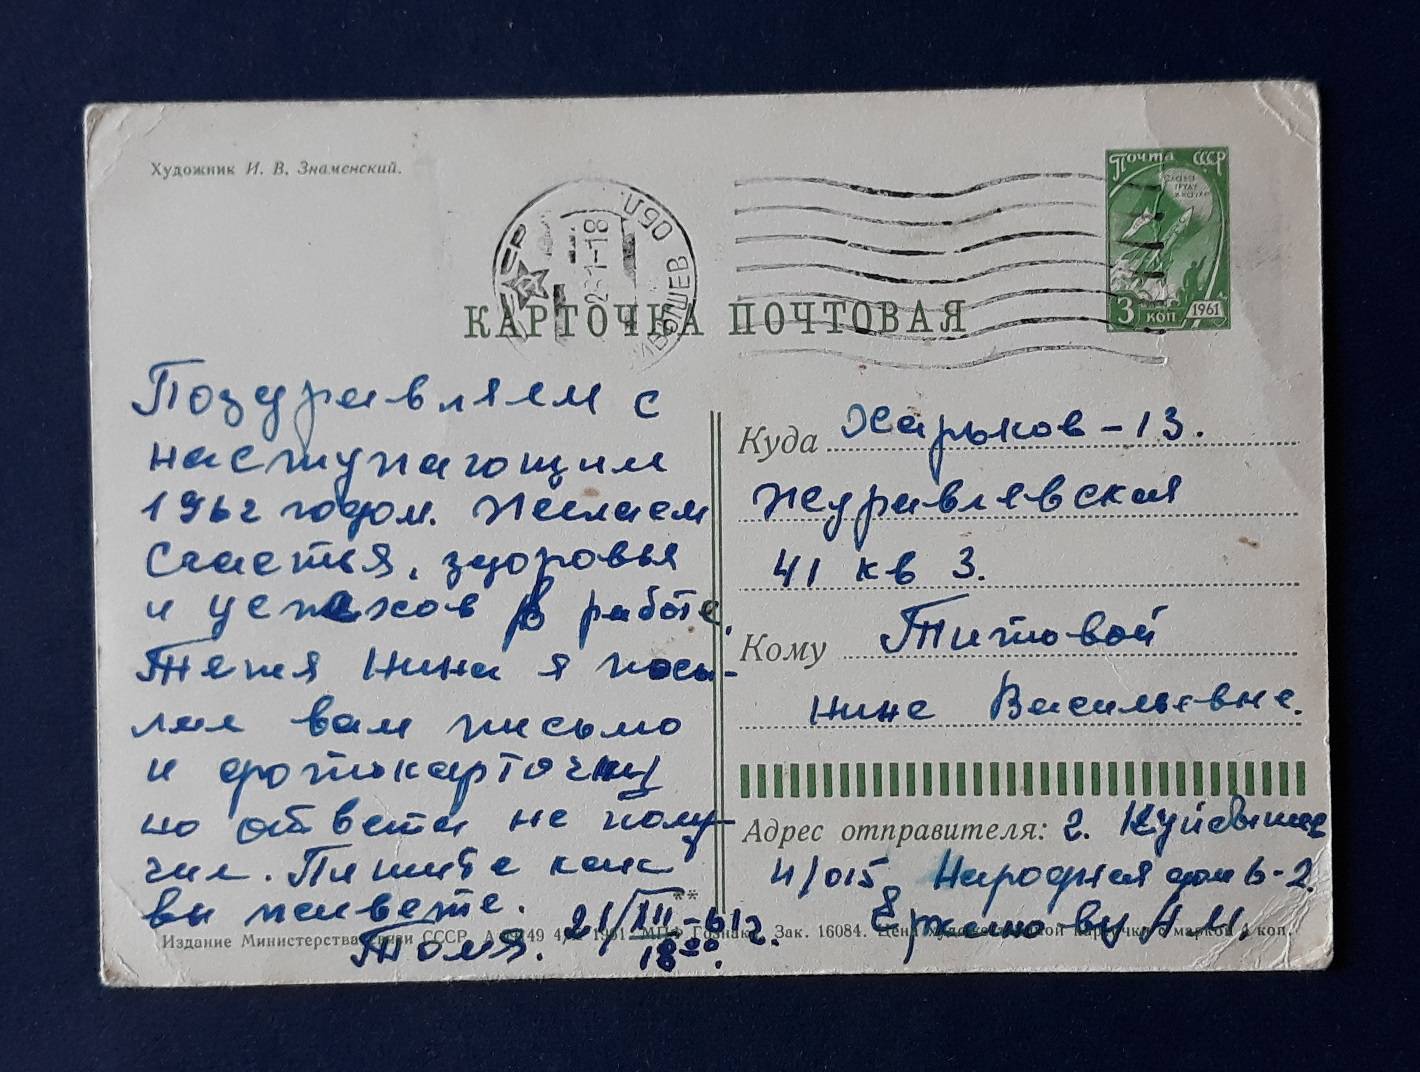 Художник И. В. Знаменский.
Почта СССР
СЛАВА
ТРУДУ
И НАУКЕ
3
КОП
1961
23 1-18
КАРТОЧКА ПОЧТОВАЯ
Поздравляем с
наступающим
1962 годом. Желаем
счастья, здоровья
и успехов в работе.
Тётя Нина я посы-
лал вам письмо
и фотокарточку
но ответа не полу-
чил. Пишите как
вы живете.
Толя. 21/XII-61 г.
18 00.
Куда Харьков-13.
Журавлевская
41 кв 3.
Кому Титовой
Нине Васильевне.
Адрес отправителя: г. Куйбышев
Народная дом 6-2.
А М.
Издание Министерства связи СССР. 1961. МПФ Гознака. Зак. 16084. Цена художественной карточки с маркой 4 коп.